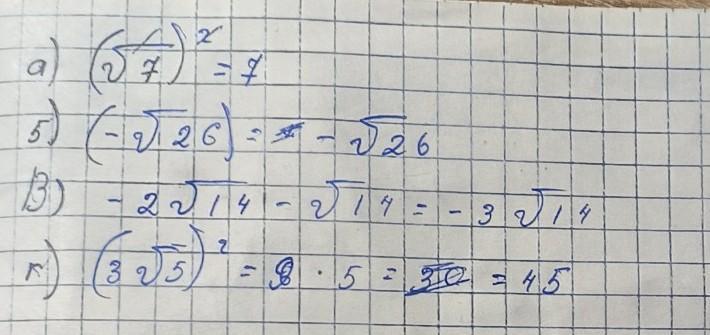 а) (√7)² = 7
б) (-√26) = -√26
в) -2√14 - √14 = -3√14
г) (3√5)² = 9 · 5 = 45